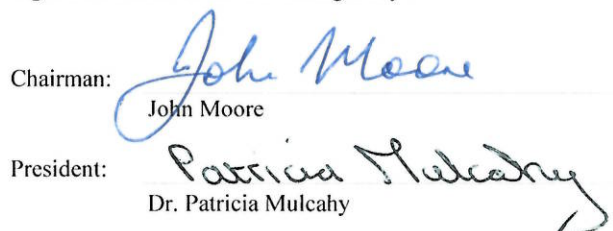 Chairman: John Moore
John Moore
President: Patricia Mulcahy
Dr. Patricia Mulcahy